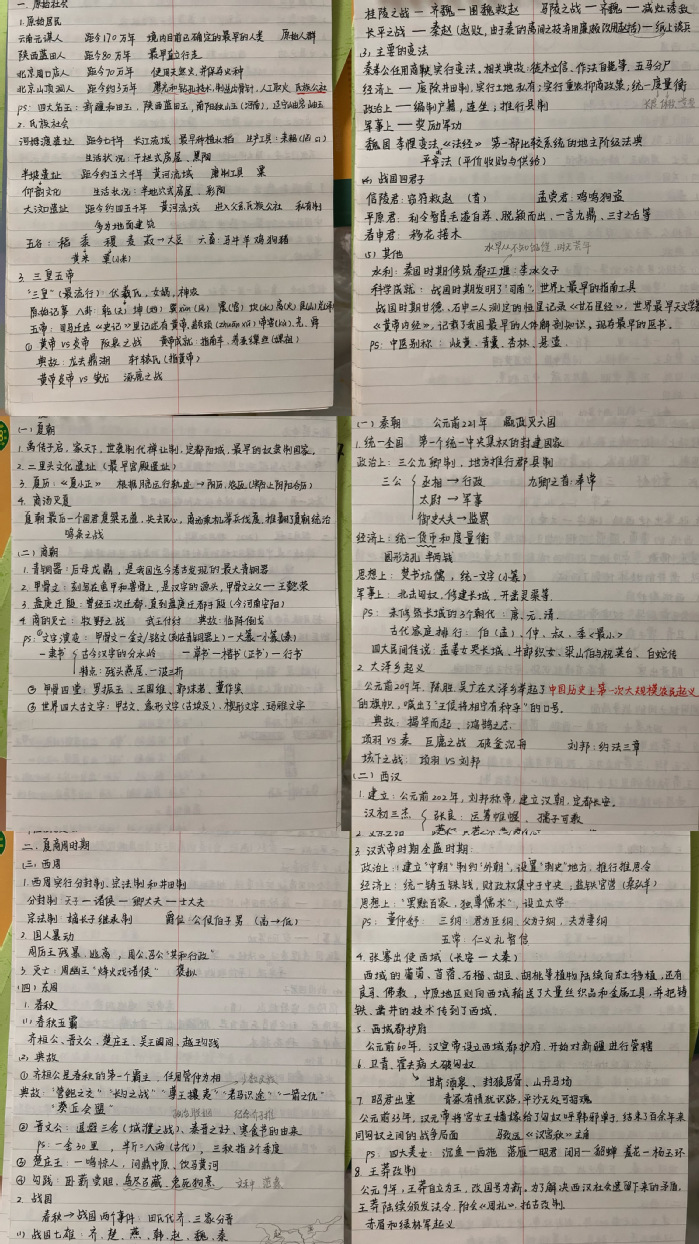 一、原始社会
1. 原始居民
云南元谋人 距今170万年 境内目前已确定的最早的人类 原始人群
陕西蓝田人 距今80万年 最早直立行走
北京周口店人 距今70万年 使用天然火，并保存火种
北京山顶洞人 距今约3万年 磨光和钻孔技术，制造出骨针，人工取火 氏族公社
PS：四大名玉：新疆和田玉，陕西蓝田玉，南阳独山玉（河南），辽宁岫岩岫玉
2. 氏族社会
河姆渡遗址 距今七千年 长江流域 最早种植水稻 生产工具：耒耜（lěi sì）
生活状况：干栏式房屋，黑陶
半坡遗址 距今约五六千年 黄河流域 磨制工具 粟
仰韶文化 生活状况：半地穴式房屋，彩陶
大汶口遗址 距今约四五千年 黄河流域 进入父系氏族公社 私有制
多为地面建筑
五谷：稻 黍 稷 麦 菽→大豆 六畜：马牛羊鸡狗猪
黄米 粟（小米）
3. 三皇五帝
“三皇”（最流行）：伏羲氏，女娲，神农
五帝：司马迁在《史记》里记述有黄帝，颛顼（zhuān xū）帝喾（kù），尧，舜
① 黄帝VS炎帝 阪泉之战 黄帝成就：指南车，养蚕缫丝（嫘祖）
典故：龙去鼎湖 轩辕氏（指黄帝）
黄帝炎帝VS蚩尤 涿鹿之战
桂陵之战—齐魏—围魏救赵 马陵之战—齐魏—减灶诱敌
长平之战—秦赵（赵败，由于秦的离间之技弃用廉颇改用赵括）—纸上谈兵
(3) 主要的变法
秦孝公任用商鞅实行变法，相关典故：徙木立信、作法自毙等，五马分尸
经济上—废除井田制，实行土地私有；实行重农抑商政策；统一度量衡
政治上—编制户籍，连坐；推行县制
军事上—奖励军功
魏国 李悝变法《法经》 第一部比较系统的地主阶级法典
平籴法（平价收购与供给）
(4) 战国四君子
信陵君：窃符救赵（首） 孟尝君：鸡鸣狗盗
平原君：利令智昏毛遂自荐、脱颖而出，一言九鼎，三寸之舌等
春申君：移花接木
(5) 其他
水旱从人不知饥馑，时无荒年
水利：秦国时期修筑都江堰：李冰父子
科学成就：战国时期发明了“司南”，世界上最早的指南工具
战国时期甘德、石申二人测定的恒星记录《甘石星经》，世界最早天文学著
《黄帝内经》，记载了我国最早的人体解剖知识，现存最早的医书。
PS：中医别称：岐黄、青囊、杏林、悬壶。
(一) 夏朝
1. 禹传子启，家天下，世袭制代禅让制，定都阳城，最早的奴隶制国家。
2. 二里头文化遗址（最早宫殿遗址）
4. 商汤灭夏
夏朝最后一个国君夏桀无道，失去民心，商汤乘机举兵伐夏，推翻了夏朝统治
鸣条之战
(二) 商朝
1. 青铜器：后母戊鼎，是我国迄今考古发现的最大青铜器
2. 甲骨文：刻写在龟甲和兽骨上，是汉字的源头，甲骨文之父—王懿荣
3. 盘庚迁殷：曾经五次迁都，直到盘庚迁都于殷（今河南安阳）
4. 商的灭亡：牧野之战 武王伐纣 典故：临阵倒戈
PS：①文字演变：甲骨文—金文/铭文（刻在青铜器上）—大篆—小篆（秦）
—隶书 古今汉字的分水岭 —草书—楷书（正书）—行书
特点：蚕头燕尾，一波三折
② 甲骨四堂：罗振玉、王国维、郭沫若、董作宾
③ 世界四大古文字：甲骨文，象形文字（古埃及），楔形文字，玛雅文字
(一) 秦朝 公元前221年 嬴政灭六国
1. 统一全国 第一个统一中央集权的封建国家
政治上：三公九卿制，地方推行郡县制
三公 丞相→行政 九卿之首：奉常
太尉→军事
御史大夫→监察
经济上：统一货币和度量衡
圆形方孔 半两钱
思想上：焚书坑儒，统一文字（小篆）
军事上：北击匈奴，修建长城，开凿灵渠等
PS：未修筑长城的3个朝代：唐、元、清。
古代家庭排行：伯（孟），仲，叔，季<最小>
四大民间传说：孟姜女哭长城、牛郎织女、梁山伯与祝英台、白蛇传
2. 大泽乡起义
公元前209年，陈胜、吴广在大泽乡举起了中国历史上第一次大规模农民起义
的旗帜，喊出了“王侯将相宁有种乎”的口号。
典故：揭竿而起，鸿鹄之志
项羽VS秦 巨鹿之战 破釜沉舟 刘邦：约法三章
垓下之战：项羽VS刘邦
(二) 西汉
1. 建立：公元前202年，刘邦称帝，建立汉朝，定都长安。
汉初三杰 张良：运筹帷幄，孺子可教
二、夏商周时期
(三) 西周
1. 西周实行分封制、宗法制和井田制
分封制：天子—诸侯—卿大夫—士大夫
宗法制：嫡长子继承制 爵位：公侯伯子男（高→低）
2. 国人暴动
周厉王残暴，逃离，周公、召公“共和行政”
3. 灭亡：周幽王“烽火戏诸侯” 褒姒
(四) 东周
1. 春秋
(1) 春秋五霸
齐桓公、晋文公，楚庄王、吴王阖闾、越王勾践
(2) 典故
① 齐桓公是春秋的第一个霸主，任用管仲为相
典故：“管鲍之交”“长勺之战”“尊王攘夷”“老马识途”“一箭之仇”
“葵丘会盟”
② 晋文公：退避三舍（城濮之战）、秦晋之好、寒食节的由来
PS：一舍30里，半斤=八两（古代），三秋指3个季度
③ 楚庄王：一鸣惊人，问鼎中原，饮马黄河
④ 勾践：卧薪尝胆，鸟尽弓藏，兔死狗烹 文种 范蠡
2. 战国
春秋→战国两个事件：田氏代齐，三家分晋
(1) 战国七雄：齐，楚，燕，韩，赵，魏，秦
3. 汉武帝时期全盛时期：
政治上：建立“中朝”制约“外朝”，设置“刺史”地方，推行推恩令
经济上：统一铸五铢钱，财政权集中于中央，盐铁官营（桑弘羊）
思想上：“罢黜百家，独尊儒术”，设立太学
PS：董仲舒： 三纲：君为臣纲，父为子纲，夫为妻纲
五常：仁义礼智信
4. 张骞出使西域（长安—大秦）
西域的葡萄、苜蓿、石榴、胡豆、胡桃等植物陆续向东土移植，还有
良马，佛教，中原地区则向西域输送了大量丝织品和金属工具，并把铸
铁、凿井的技术传到了西域。
5. 西域都护府
公元前60年，汉宣帝设立西域都护府，开始对新疆进行管辖
6. 卫青、霍去病大破匈奴
甘肃酒泉、封狼居胥、山丹马场
7. 昭君出塞 青冢有情犹识路，平沙无处可招魂
公元前33年，汉元帝将宫女王嫱嫁给了匈奴呼韩邪单于，结束了百余年来
同匈奴之间的战争局面 马致远《汉宫秋》主角
PS：四大美女：沉鱼—西施 落雁—昭君 闭月—貂蝉 羞花—杨玉环
8. 王莽改制
公元9年，王莽自立为王，改国号为新。为了解决西汉社会遗留下来的矛盾，
王莽陆续颁发法令，附会《周礼》，托古改制。
赤眉和绿林军起义